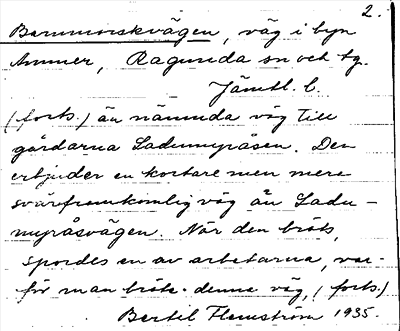 2.
Barnmorskvägen, väg i byn
Ammer, Ragunda sn och tg.
Jämtl. l.
(forts.) än nämnda väg till
gårdarna Ladumyråsen. Den
erbjuder en kortare men mera
svårframkomlig väg än Ladu-
myråsvägen. När den bröts,
spordes en av arbetarna, var-
för man bröt denna väg, (forts.)
Bertil Flemström 1935.